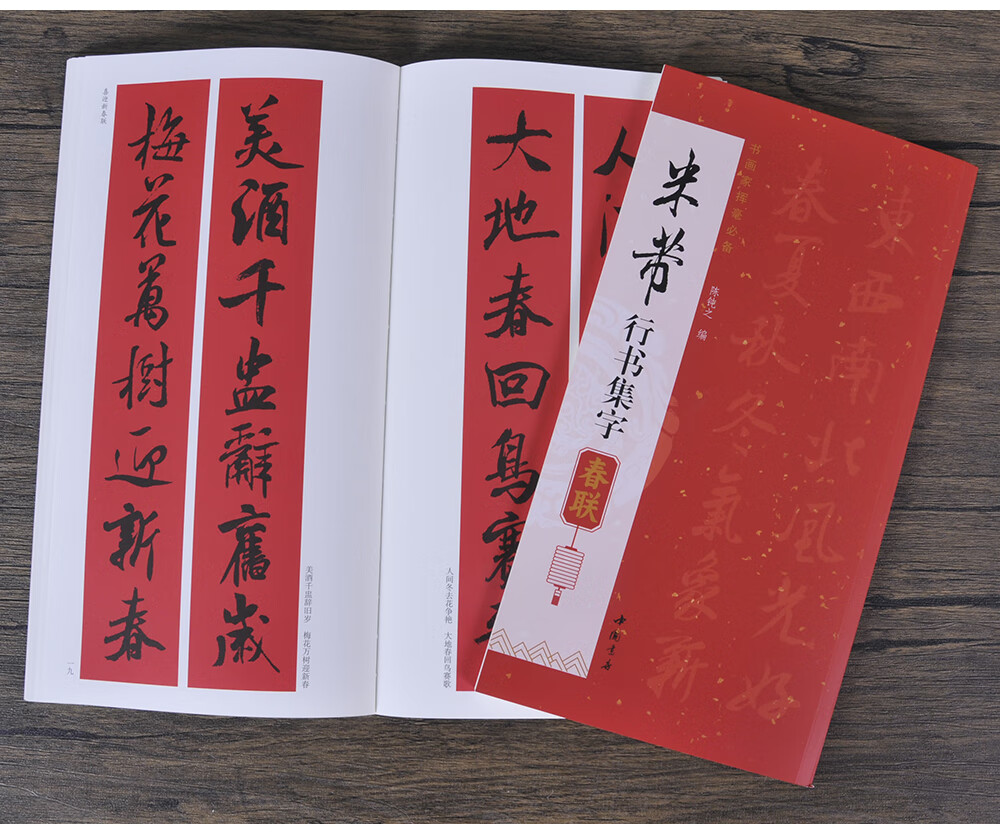 喜迎新春联
美酒千盅辭舊歲
梅花萬樹迎新春
美酒千盅辞旧岁 梅花万树迎新春
一九
人
大地春回鳥
人间冬去花争艳 大地春回鸟赛歌
書画家挥毫必备
米芾
行书集字
春联
陈钝之 编
中国书店
東西南北風光好
春夏秋冬氣象新